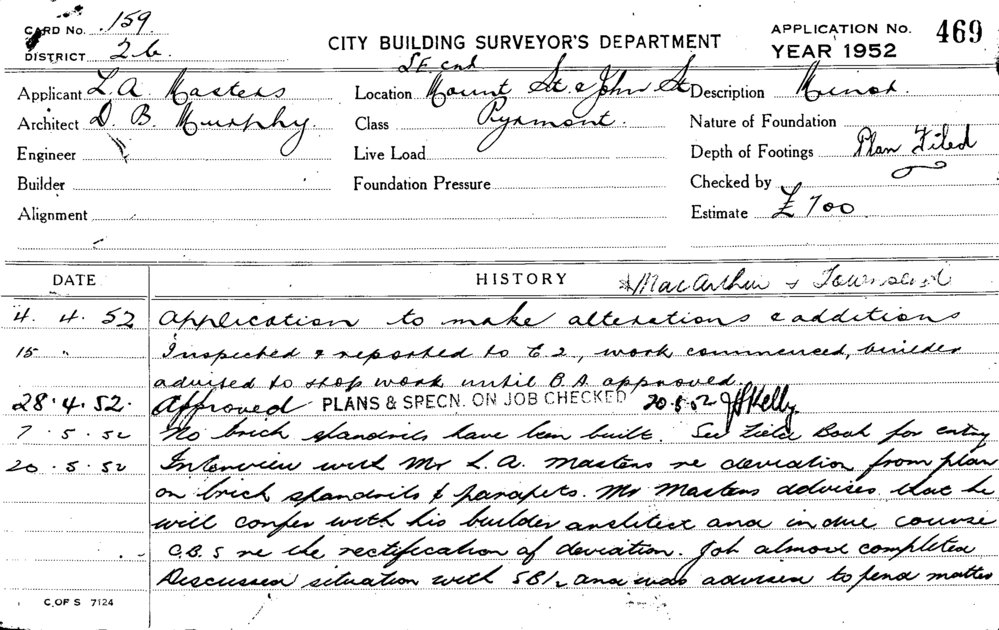 CARD No. 159
DISTRICT 26
CITY BUILDING SURVEYOR'S DEPARTMENT
APPLICATION No. 469
YEAR 1952
Applicant L. A. Masters
Location Mount St. & John St
Description Minor.
Architect D. B. Murphy.
Class Pyrmont.
Nature of Foundation
Engineer
Live Load
Depth of Footings Plan Filed
Builder
Foundation Pressure
Checked by
Alignment
Estimate £700
DATE
HISTORY
& MacArthur & Townsend
4. 4. 52 Application to make alterations & additions
15 " Inspected & reported to E.2., work commenced, builder
advised to stop work until B.A. approved.
28.4.52. Approved PLANS & SPECN. ON JOB CHECKED 20.5.52 Kelly
7.5.52 No brick spandrils have been built. See Field Book for entry
20.5.52 Interview with Mr L. A. Masters re deviation from plan
on brick spandrils & parapets. Mr Masters advises that he
will confer with his builder architect and in due course
C.B.S re the rectification of deviation. Job almost completed
Discussed situation with and was advised to pend matter
C.OF S 7124